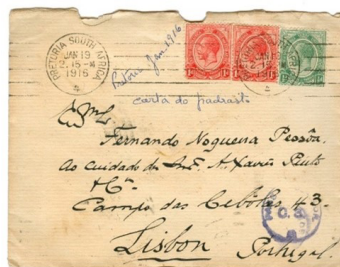 PRETORIA SOUTH AFRICA
JAN 19
2.15-M
1916
4
Pretoria Jan 1916
carta do padrasto
Fernando Nogueira Pessôa.
ao cuidado de A. Xavier Pinto
& Cia
Campo das Cebolas 43.
Lisbon
Portugal.
C.3